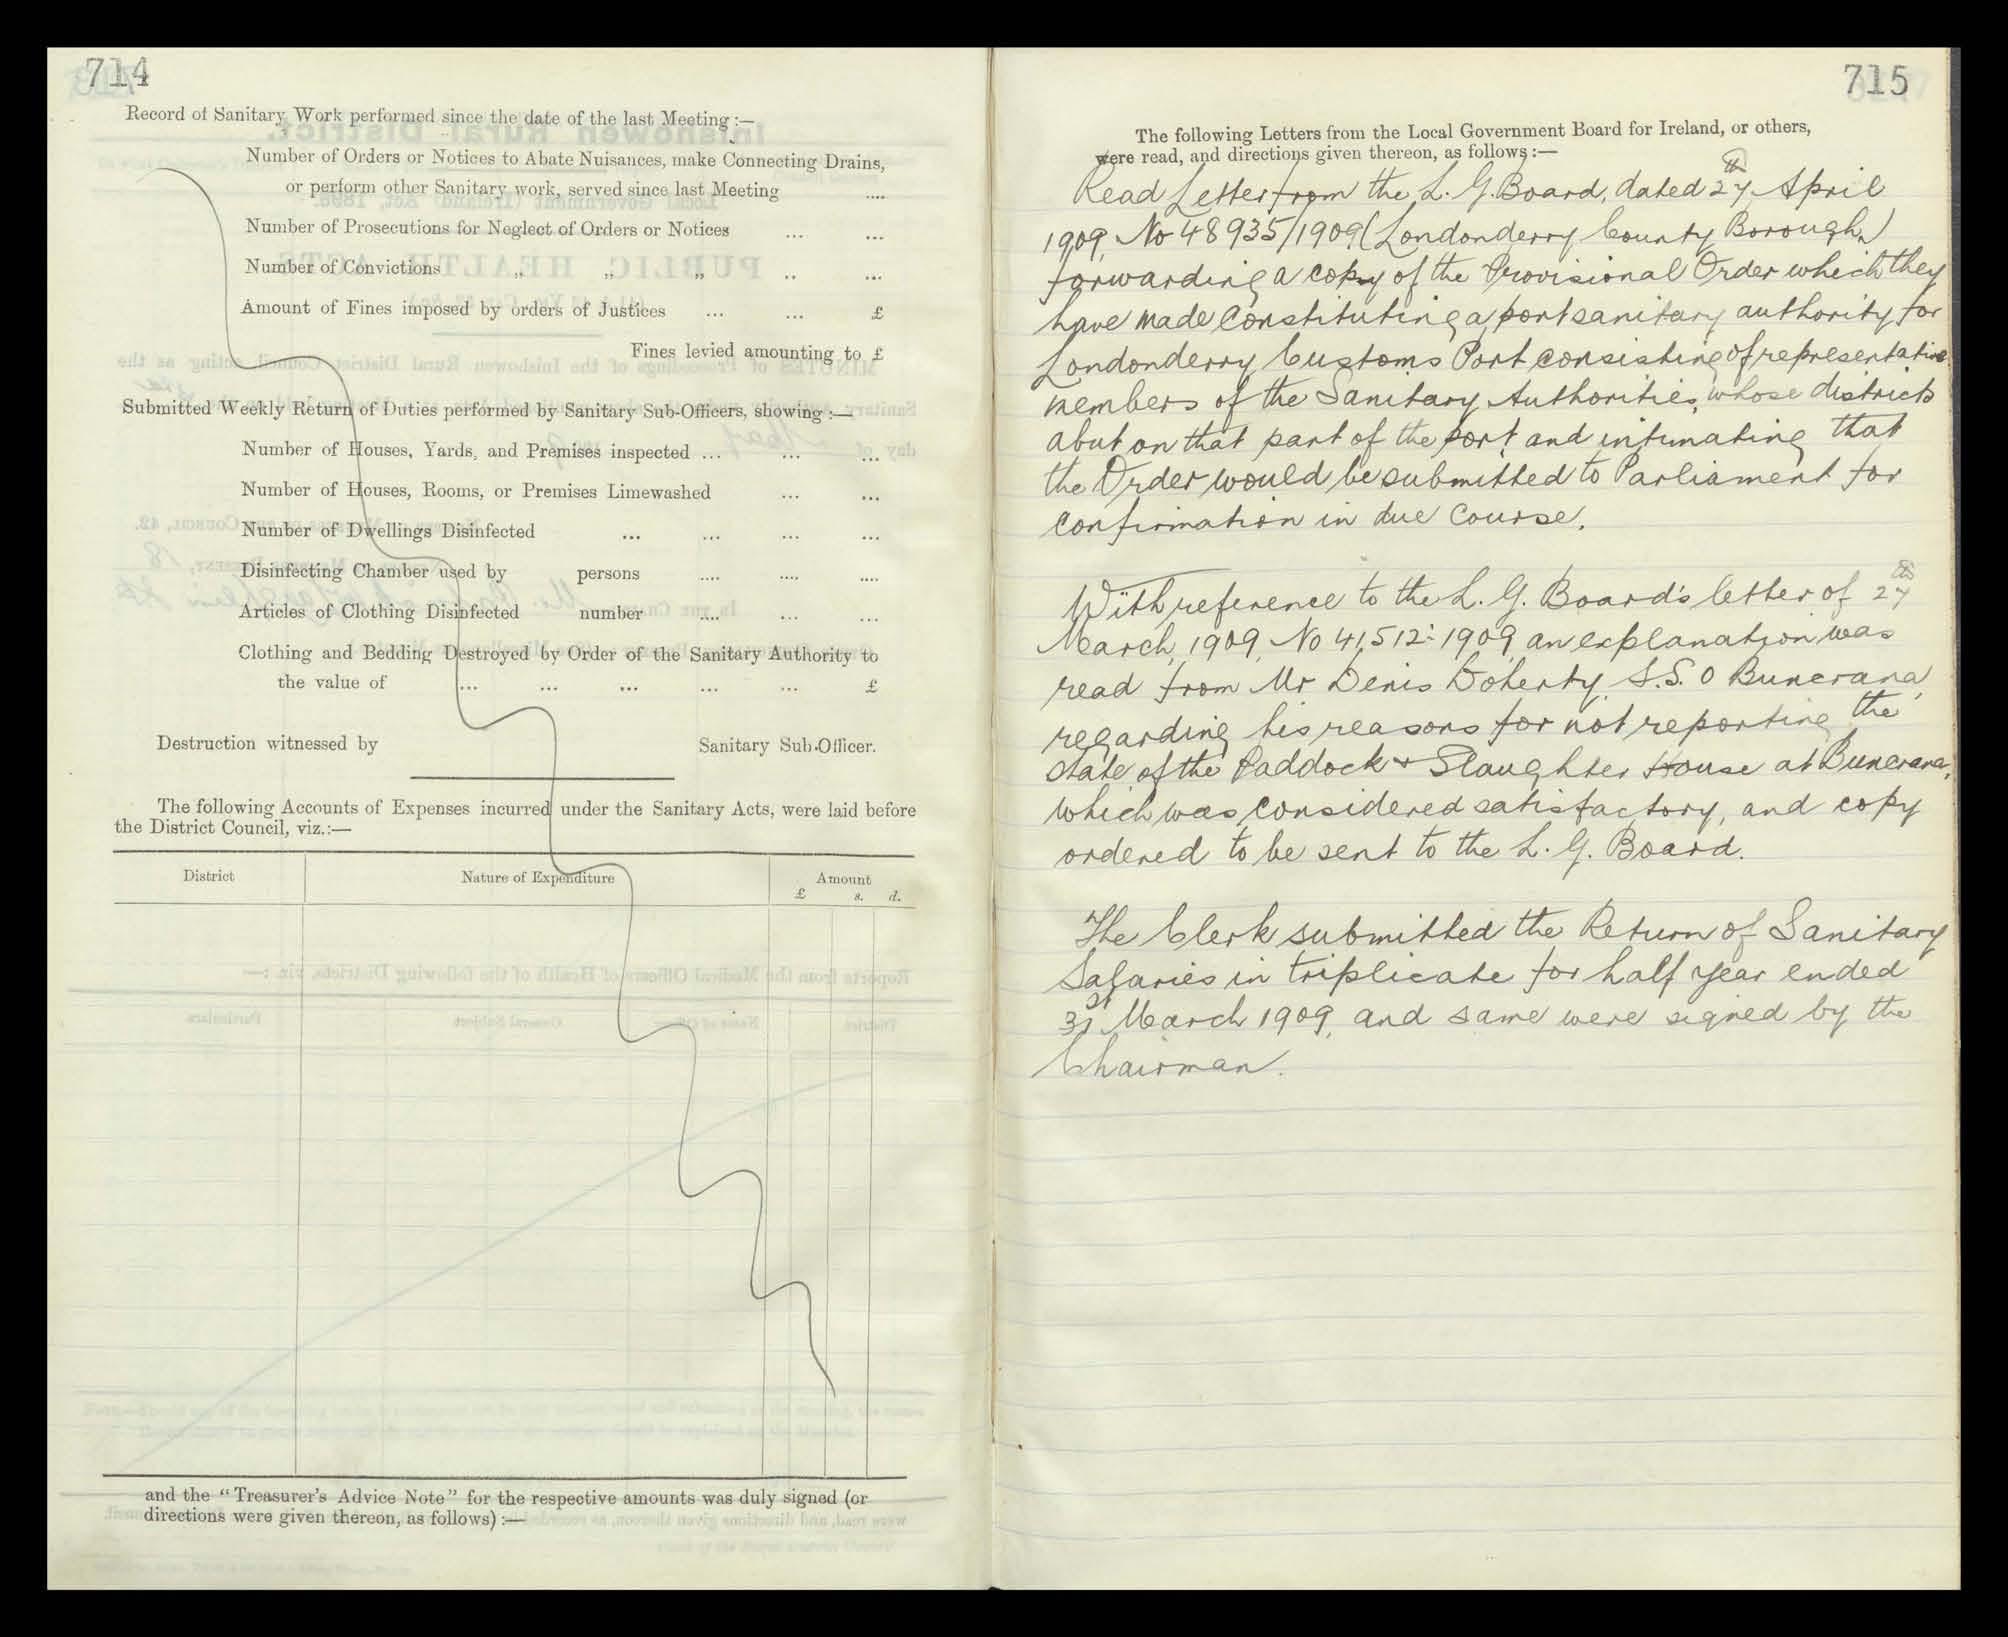 714
Record of Sanitary Work performed since the date of the last Meeting :—
Number of Orders or Notices to Abate Nuisances, make Connecting Drains,
or perform other Sanitary work, served since last Meeting ....
Number of Prosecutions for Neglect of Orders or Notices ... ...
Number of Convictions „ „ „ .. ...
Amount of Fines imposed by orders of Justices ... ... £
Fines levied amounting to £
Submitted Weekly Return of Duties performed by Sanitary Sub-Officers, showing :—
Number of Houses, Yards, and Premises inspected ... ... ...
Number of Houses, Rooms, or Premises Limewashed ... ...
Number of Dwellings Disinfected ... ... ... ...
Disinfecting Chamber used by persons .... .... ....
Articles of Clothing Disinfected number .... ... ...
Clothing and Bedding Destroyed by Order of the Sanitary Authority to
the value of ... ... ... ... ... £
Destruction witnessed by Sanitary Sub-Officer.
The following Accounts of Expenses incurred under the Sanitary Acts, were laid before
the District Council, viz.:—
District Nature of Expenditure Amount
£ s. d.
and the "Treasurer's Advice Note" for the respective amounts was duly signed (or
directions were given thereon, as follows) :—
715
The following Letters from the Local Government Board for Ireland, or others,
were read, and directions given thereon, as follows :—
Read Letter from the L. G. Board, dated 27th April
1909, No 48935/1909 (Londonderry County Borough)
forwarding a copy of the Provisional Order which they
have made Constituting a port sanitary authority for
Londonderry Customs Port consisting of representative
members of the Sanitary Authorities, whose districts
abut on that part of the port, and intimating that
the Order would be submitted to Parliament for
confirmation in due course.
With reference to the L. G. Board's letter of 27th
March, 1909, No 41,512: 1909, an explanation was
read from Mr Denis Doherty, S.S.O Buncrana,
regarding his reasons for not reporting the
state of the Paddock & Slaughter House at Buncrana,
which was considered satisfactory, and copy
ordered to be sent to the L. G. Board.
The Clerk submitted the Return of Sanitary
Salaries in triplicate for half year ended
31st March 1909, and same were signed by the
Chairman.